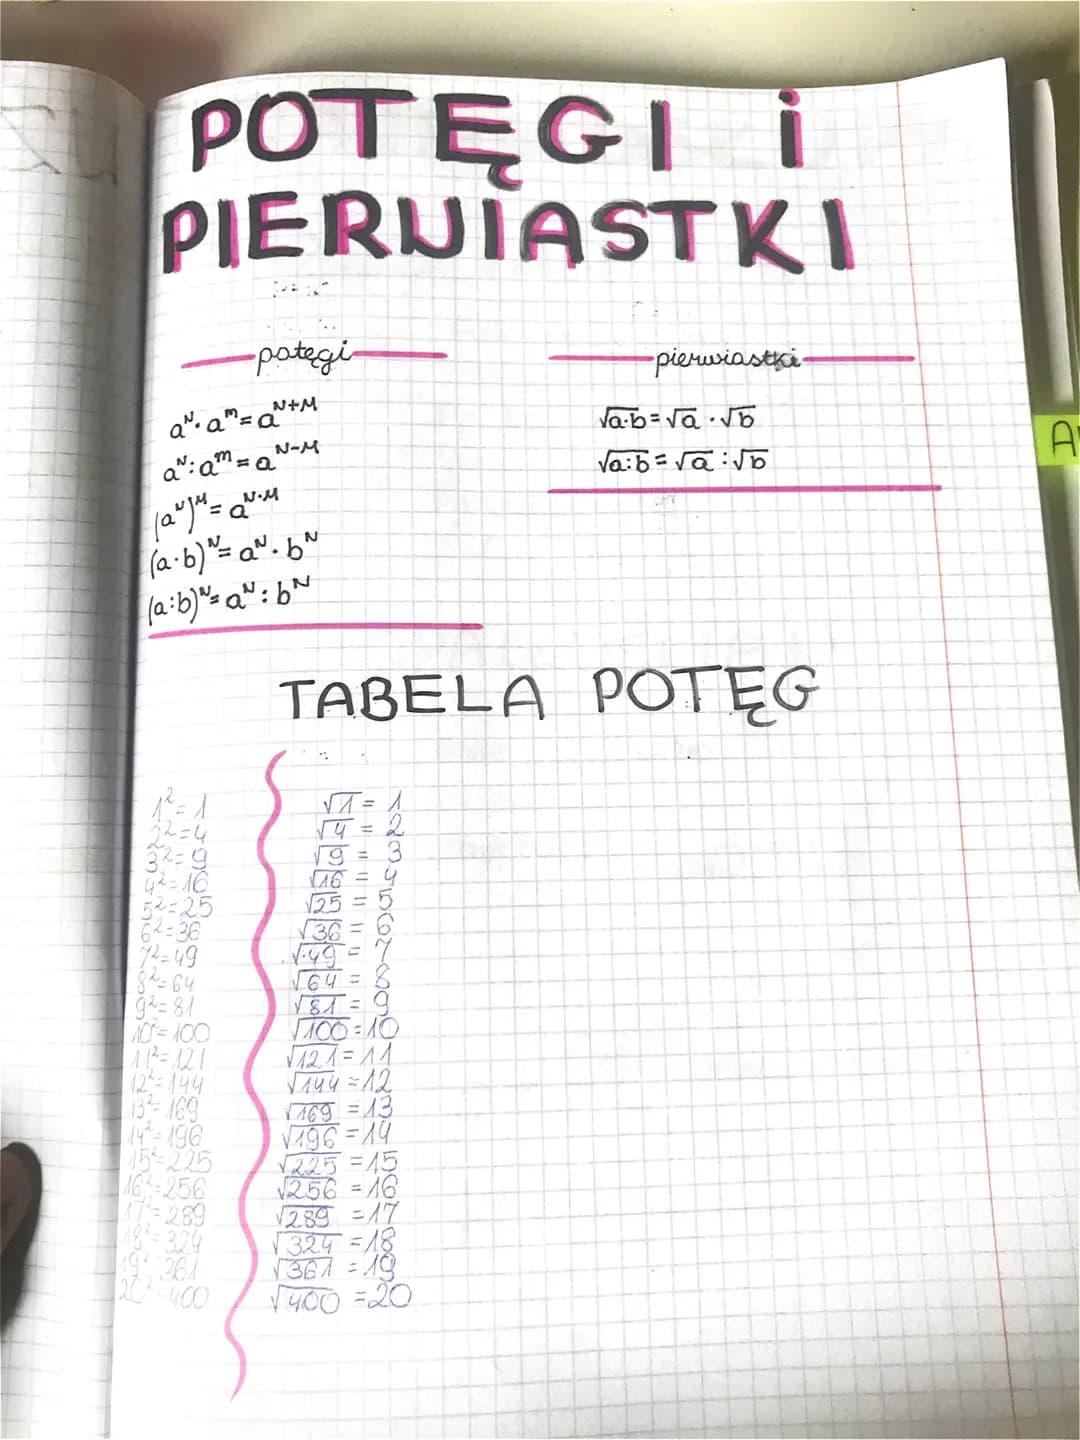 POTĘGI i
PIERWIASTKI
potęgi
aᴺ · aᵐ = aᴺ⁺ᴹ
aᴺ : aᵐ = aᴺ⁻ᴹ
(aᴺ)ᴹ = aᴺ·ᴹ
(a·b)ᴺ = aᴺ · bᴺ
(a:b)ᴺ = aᴺ : bᴺ
pierwiastki
√a·b = √a · √b
√a:b = √a : √b
TABELA POTĘG
1² = 1
2² = 4
3² = 9
4² = 16
5² = 25
6² = 36
7² = 49
8² = 64
9² = 81
10² = 100
11² = 121
12² = 144
13² = 169
14² = 196
15² = 225
16² = 256
17² = 289
18² = 324
19² = 361
20² = 400
√1 = 1
√4 = 2
√9 = 3
√16 = 4
√25 = 5
√36 = 6
√49 = 7
√64 = 8
√81 = 9
√100 = 10
√121 = 11
√144 = 12
√169 = 13
√196 = 14
√225 = 15
√256 = 16
√289 = 17
√324 = 18
√361 = 19
√400 = 20